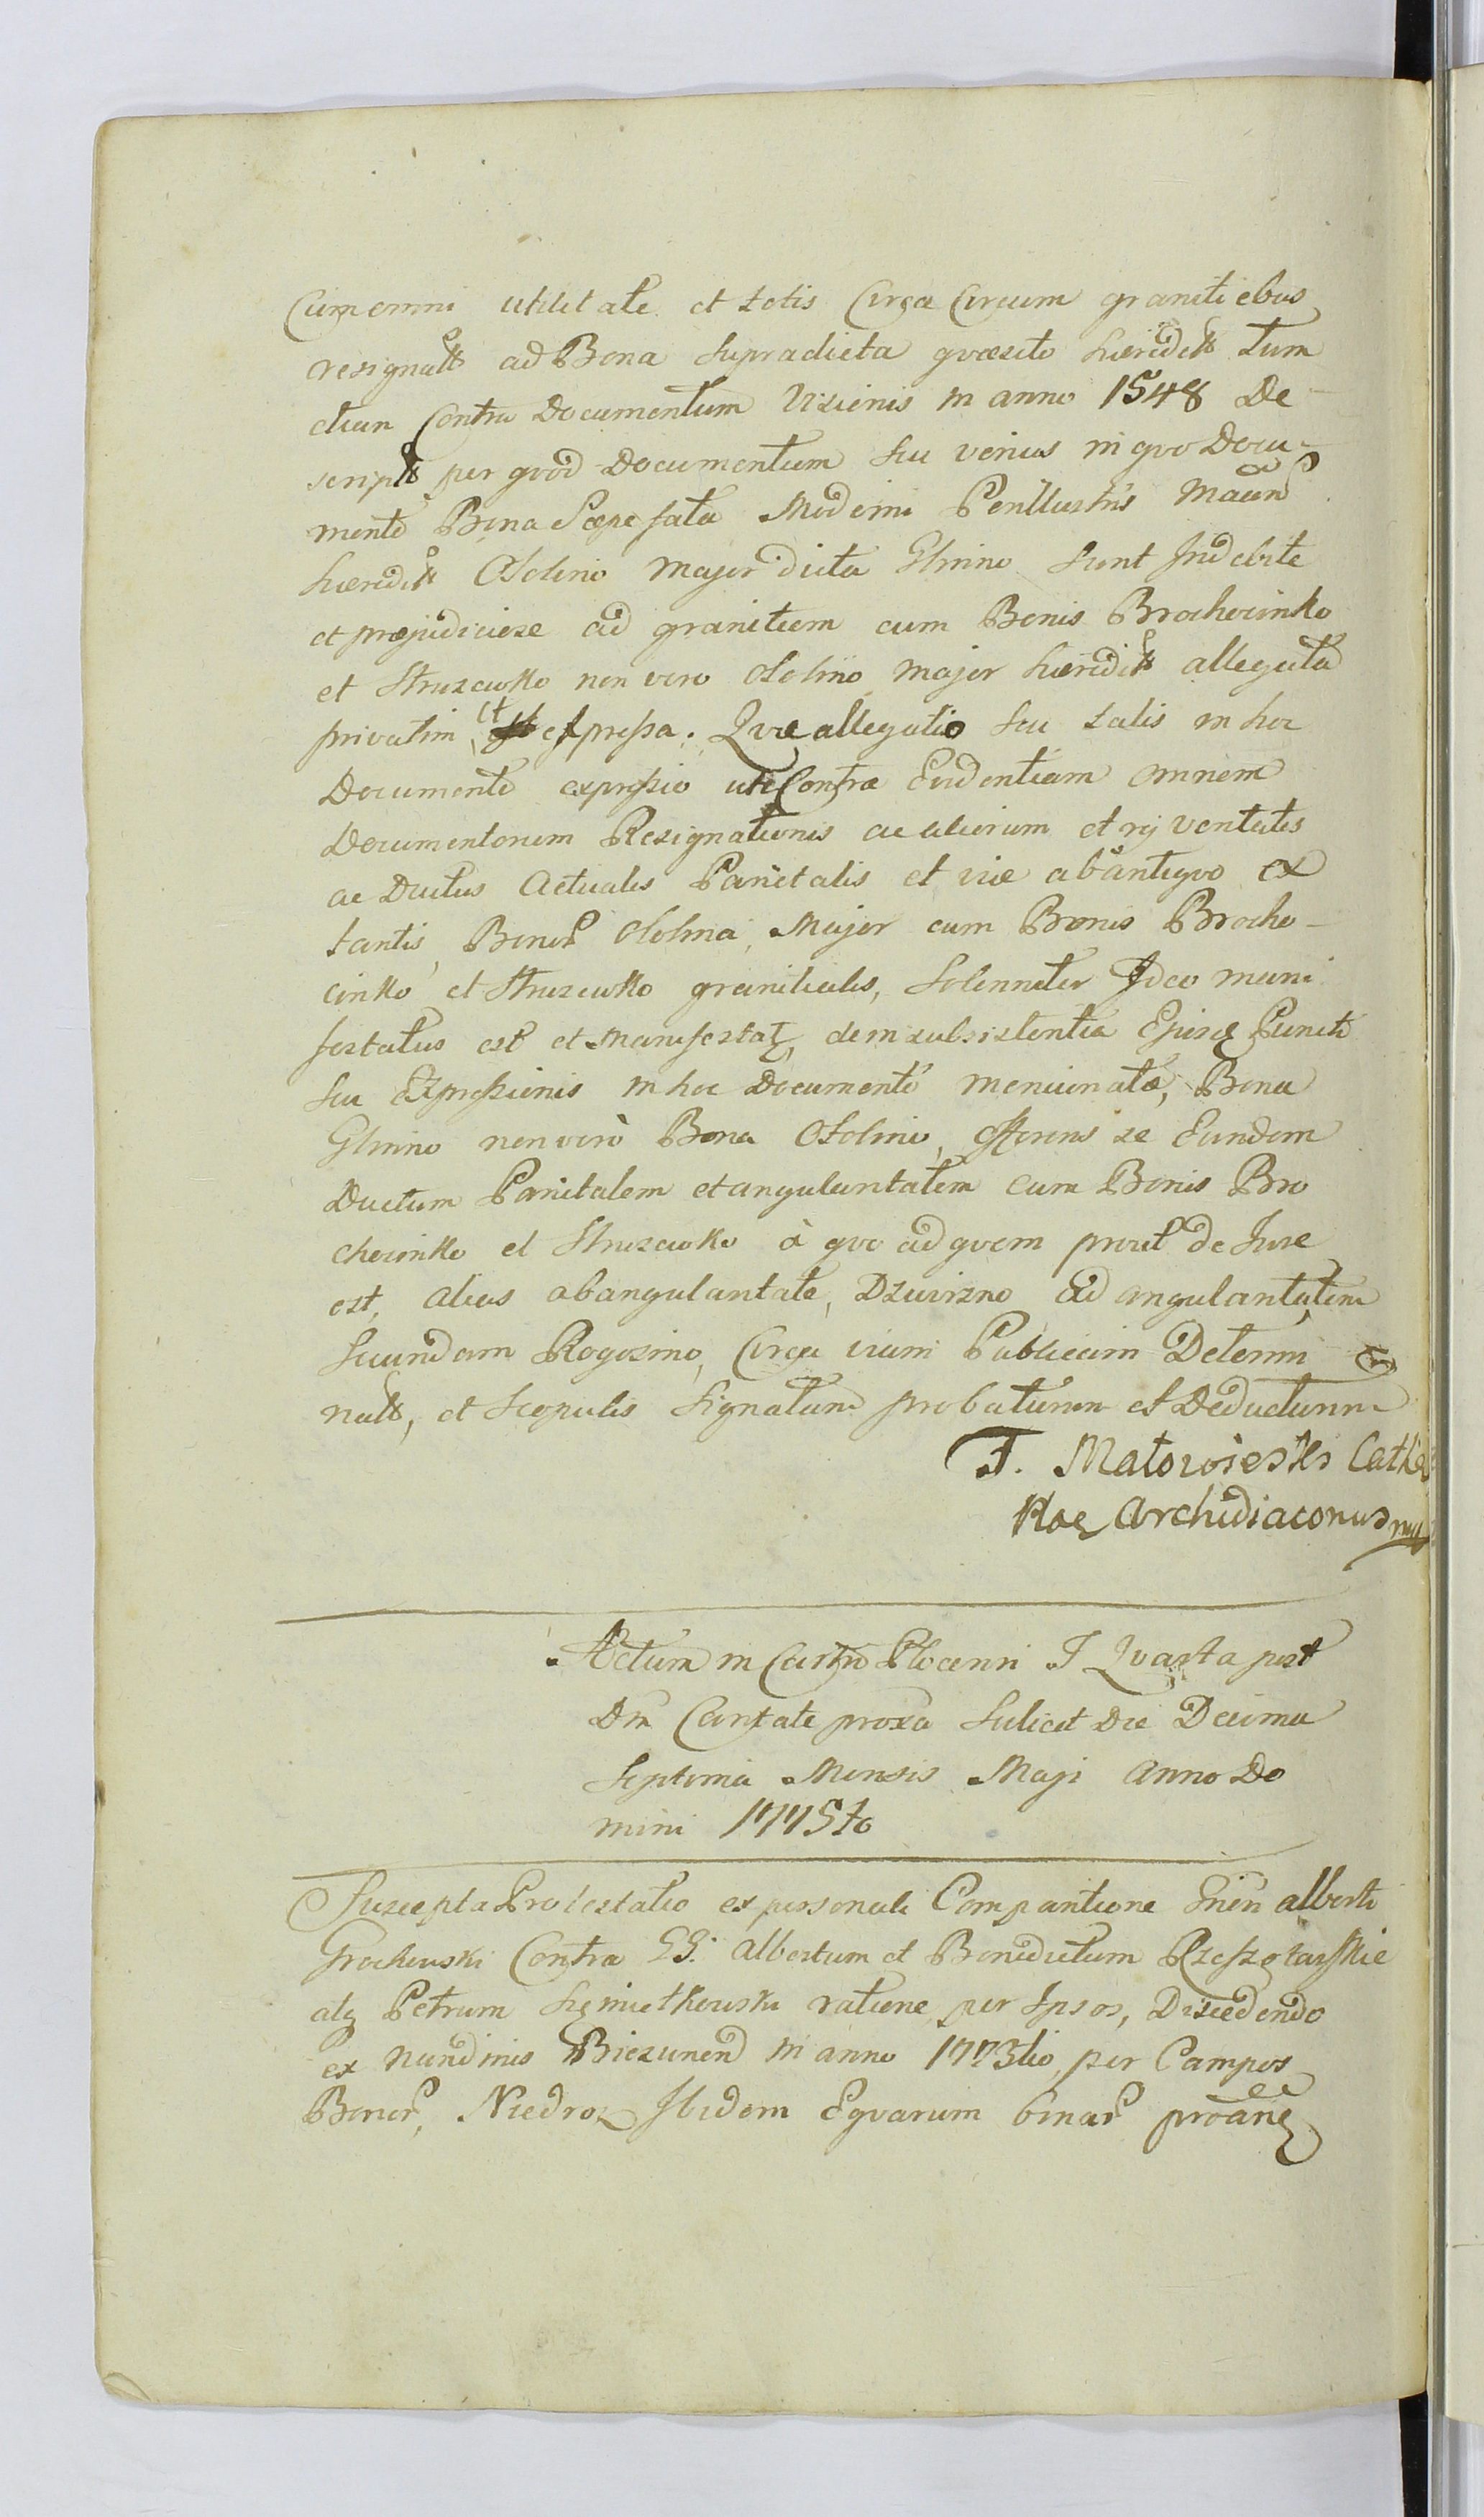 Cum omni utilitate et totis Circa Circum granitiebus
resignatt ad Bona supradicta quæsito hæredit tum
etiam Contra Documentum Vizienis in anno 1548 De-
script per quod Documentum seu verius in quo Docu-
mento Bona Sæpe fata Moderni Perillustris Maan
hæredit Osolino Major dicta Glinino sunt Indebite
et præjudiciose ad granitiem cum Bonis Brochocinko
et Struzewko non vero Osolino Major hæredit allegata
privatim, et expressa. Quæ allegatio seu talis in hoc
Documento expressio uti Contra Evidentiam omnem
Documentorum Resignationis ac aliorum et rej veritatis
ac Ductus Actualis Parietalis et viæ ab antiquo Ex
tantis, Bonor Osolina, Major cum Bonis Brocho-
cinko et Struzewko granitialis, Solenniter Ideo mani
festatus est et Manifestat, de insubsistentia Ejusq Puncti
seu Expressionis in hoc Documento mencionatæ, Bona
Glinino non verò Bona Osolino, offerens se Eundem
Ductum Parietalem et angularitatem cum Bonis Bro
chocinko et Struzewko à quo ad quem prout de Jure
est, alias ab angularitate, Dzwirzno ad angularitatem
secundam Rogozino, Circa viam Publicam Determi
natt, et Scopulis Signatum probaturum et Deducturum
F. Matowieski Cathe
Ploc Archidiaconus mp
Actum in Castro Plocensi F Quarta post
Dm Cantate proxa scilicet Die Decima
Septima Mensis Maji Anno Do
mini 1775to
Suscepta Protestatio ex personali Comparitione Gnen alberti
Grochowski Contra GG. Albertum et Benedictum Rzeszotarskie
atq Petrum Szmietkowski ratione per Ipsos, Discedendo
ex nundinis Biezunen in anno 1773tio per Campos
Bonor, Niedroz Ibidem Equarum binar